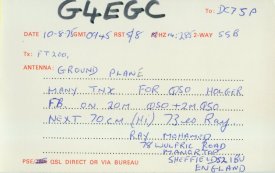 G4EGC To: DC7SP
DATE 10-8-75 GMT 0945 RST 5/8 HZ 14.285 2-WAY SSB
Tx: FT200,
ANTENNA: GROUND PLANE
MANY TNX FOR QSO HOLGER
FB. ON 20M QSO + 2M QSO
NEXT 70 CM (HI) 73 Ray
RAY
78 WULFRIC ROAD
MANOR TOP
SHEFFIELD S2 1
ENGLAND
PSE QSL DIRECT OR VIA BUREAU